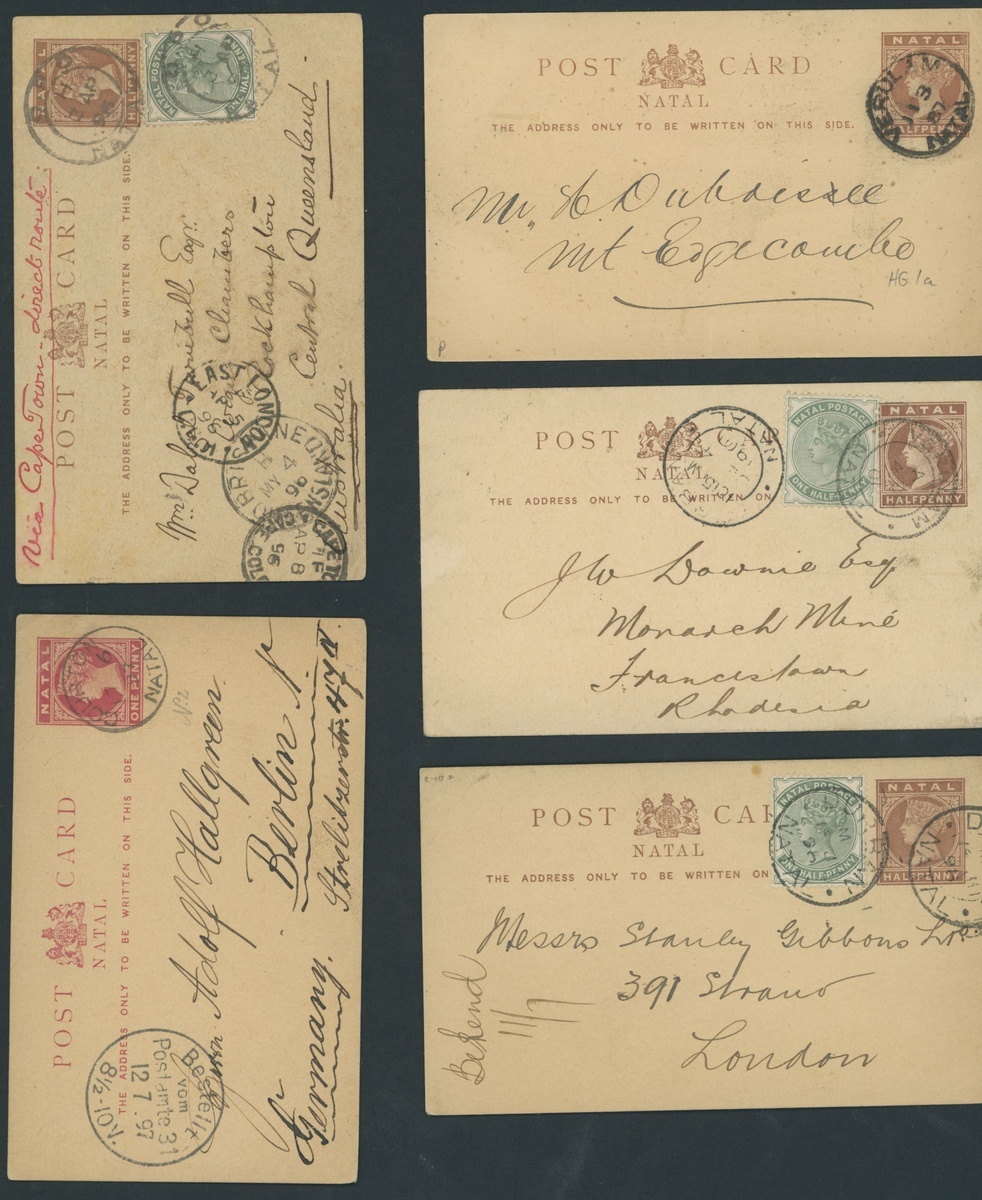 NATAL
HALFPENNY
NATAL POSTAGE
ONE HALF-PENNY
via Cape Town - direct route.
POST CARD
NATAL
THE ADDRESS ONLY TO BE WRITTEN ON THIS SIDE.
Esqr.
Chambers
Rockhampton
Central Queensland.
Australia.
EAST
LONDON
MY 4
96
AP 8
96
NATAL
ONE PENNY
POST CARD
NATAL
THE ADDRESS ONLY TO BE WRITTEN ON THIS SIDE.
Adolf Hallgreen
Berlin
Strelitzerstr. 47
Germany.
Bestellt
vom
Postamte 31
12 7. 97
8½-10V.
POST CARD
NATAL
THE ADDRESS ONLY TO BE WRITTEN ON THIS SIDE.
NATAL
HALFPENNY
VERULAM
NATAL
Mr. H.
Mt Edgecombe
HG 1a
P
NATAL
THE ADDRESS ONLY TO BE WRITTEN ON
NATAL POSTAGE
ONE HALF-PENNY
NATAL
HALFPENNY
J W Downie Esq
Monarch Mine
Francestown
Rhodesia
POST CAR
NATAL
THE ADDRESS ONLY TO BE WRITTEN ON
NATAL POSTAGE
ONE HALF-PENNY
NATAL
HALFPENNY
DURBAN
NATAL
Messrs Stanley Gibbons Ld
391 Strand
London
11/7